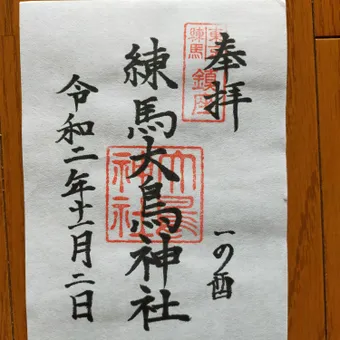 奉拝
東京練馬鎮座
一の酉
練馬大鳥神社
大鳥神社
令和二年十一月二日